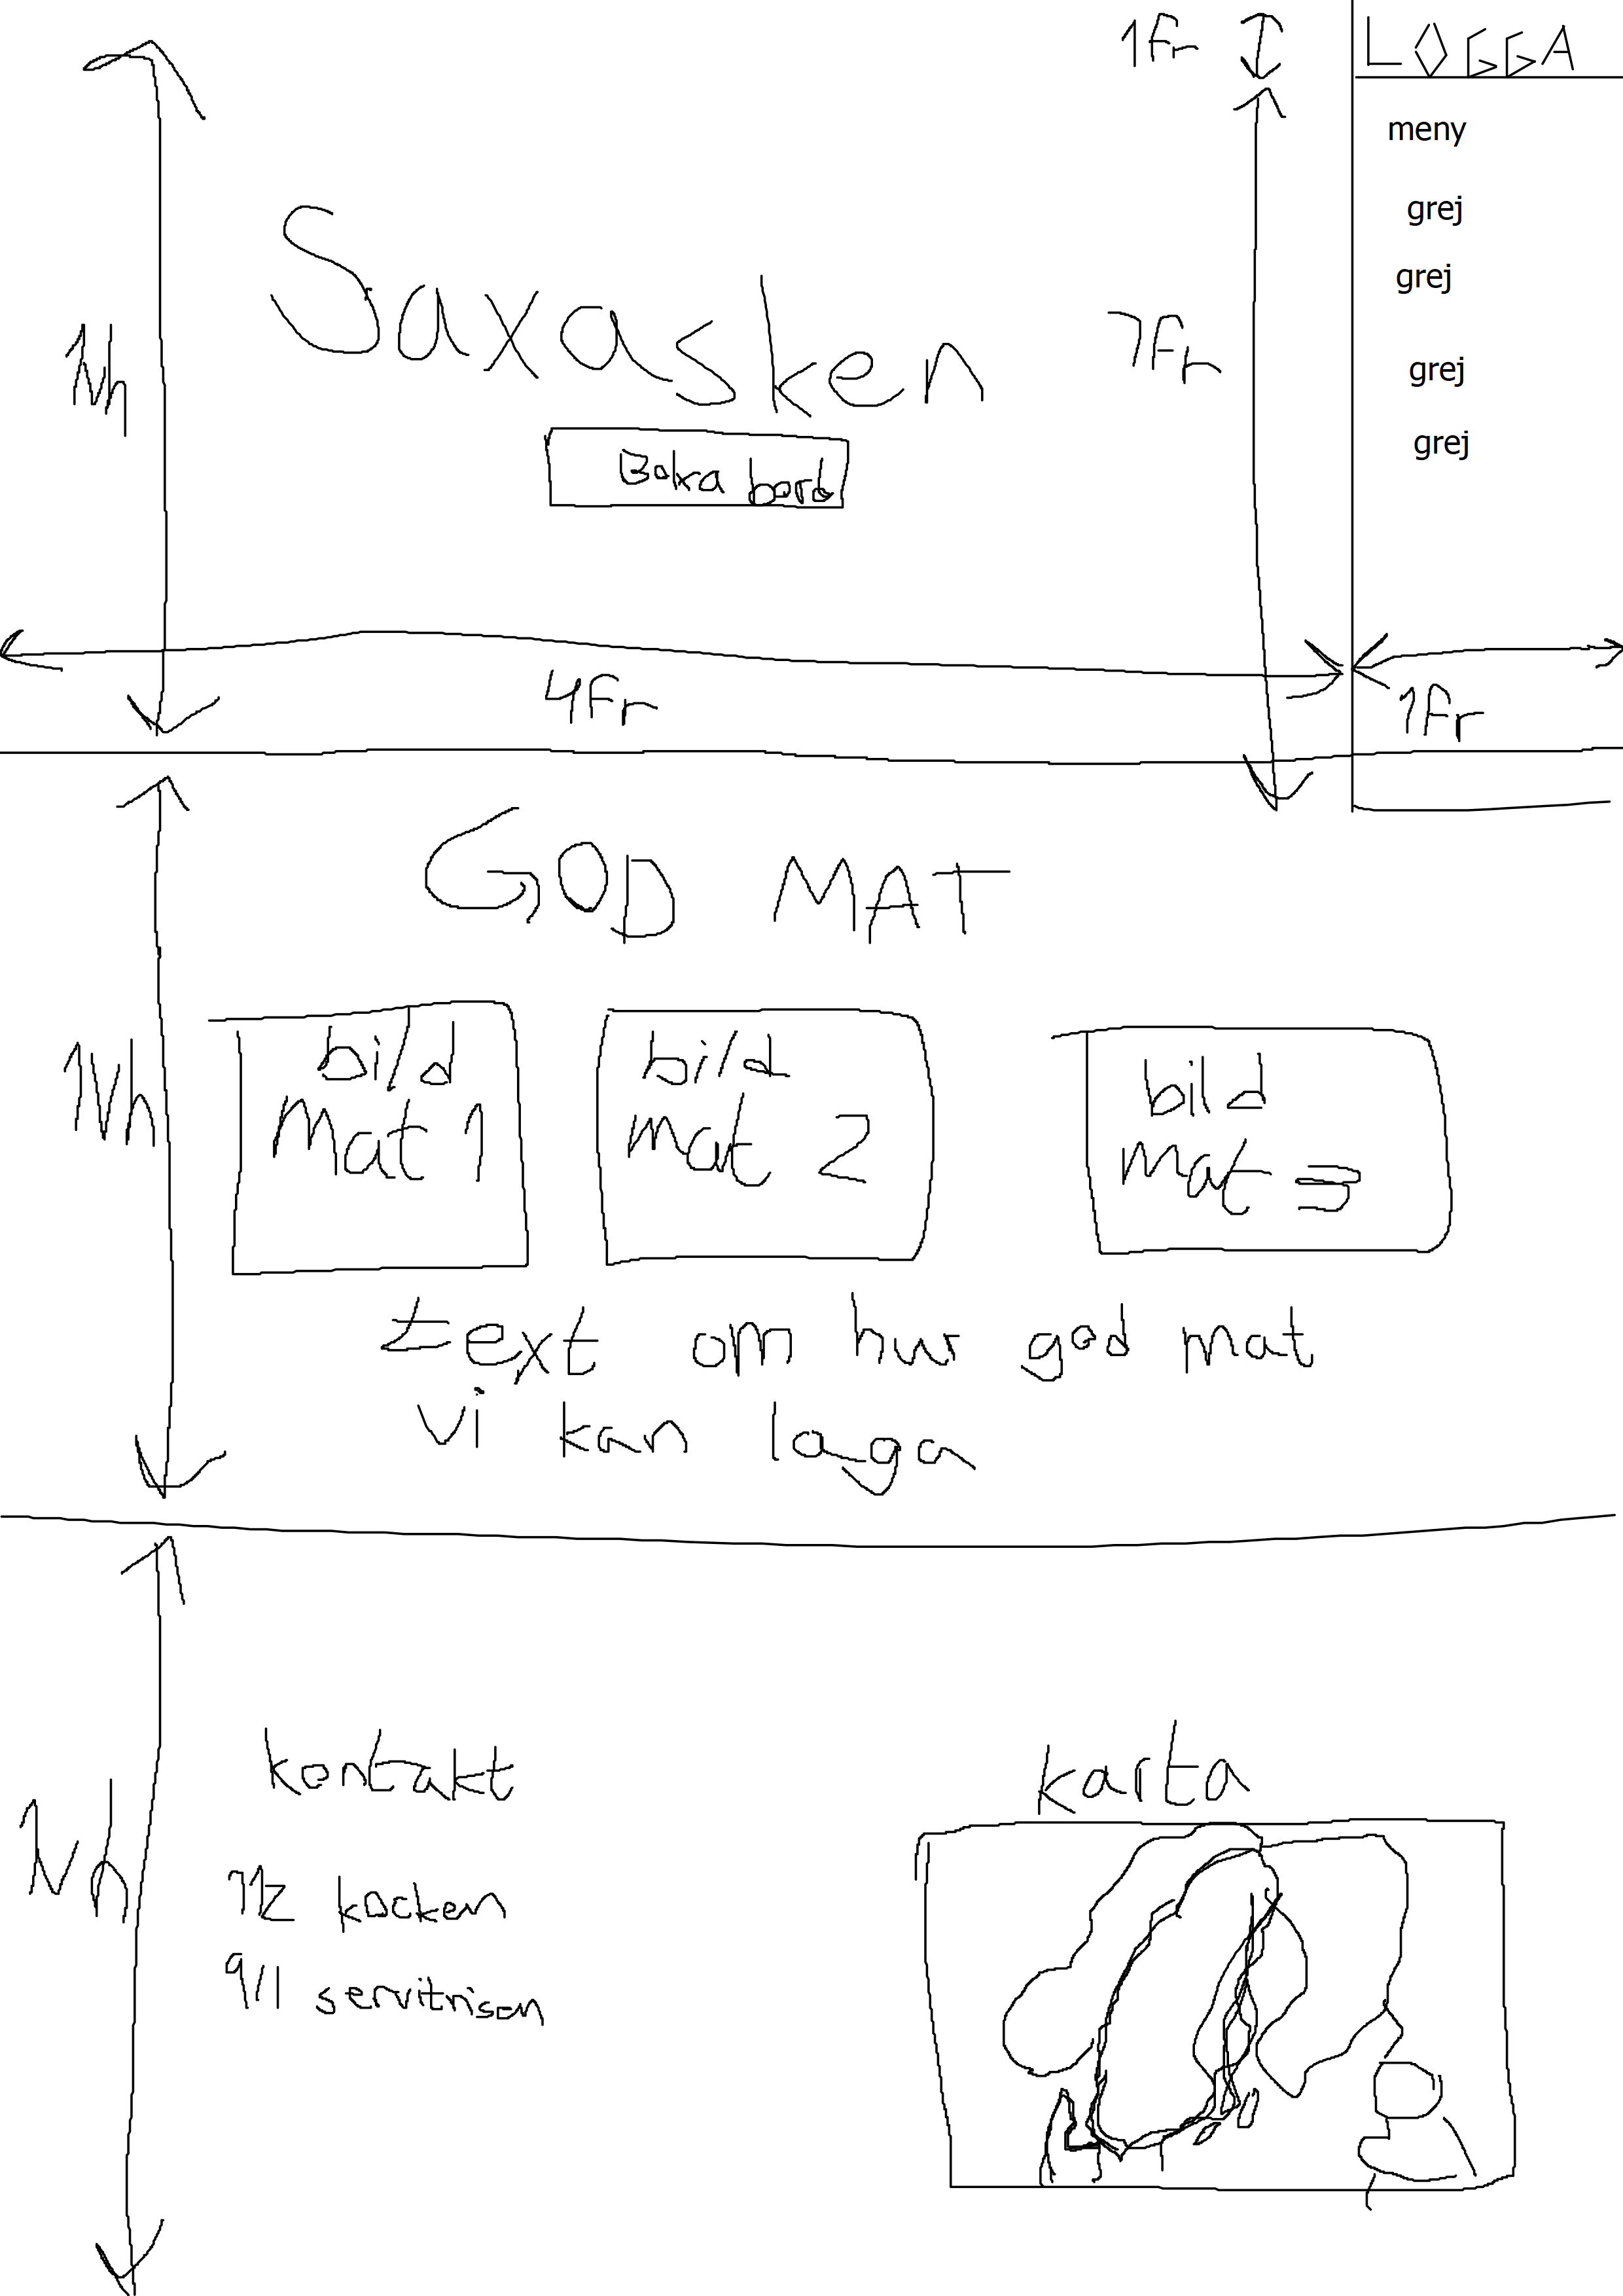 1Fr
LOGGA
meny
grej
grej
grej
grej
Saxasken
Boka bord
7Fr
1Vh
4Fr
1Fr
GOD MAT
1Vh
bild
Mat 1
bild
mat 2
bild
mat 3
text om hur god mat
vi kan laga
1Vh
kontakt
112 kocken
911 servitrisen
karta